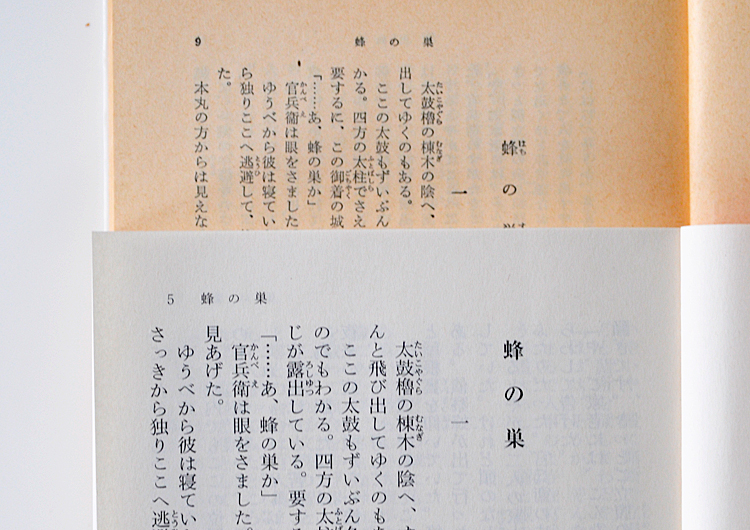 9 蜂の巣
蜂の
一
太鼓櫓の棟木の陰へ、
出してゆくのもある。
ここの太鼓もずいぶん
かる。四方の太柱でさえ
要するに、この御着の城
「……あ、蜂の巣か」
官兵衞は眼をさました
ゆうべから彼は寝てい
ら独りここへ逃避して、
た。
本丸の方からは見えな
5 蜂の巣
蜂の巣
一
太鼓櫓の棟木の陰へ、
んと飛び出してゆくのも
ここの太鼓もずいぶん
のでもわかる。四方の太
じが露出している。要す
「……あ、蜂の巣か」
官兵衛は眼をさました。
見あげた。
ゆうべから彼は寝てい
さっきから独りここへ逃